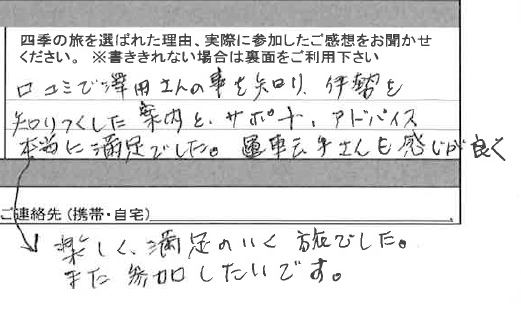 四季の旅を選ばれた理由、実際に参加したご感想をお聞かせ
ください。 ※書ききれない場合は裏面をご利用下さい
口コミで澤田さんの事を知り、伊勢を
知りつくした案内と、サポート、アドバイス
本当に満足でした。運転手さんも感じが良く
ご連絡先（携帯・自宅）
楽しく、満足のいく旅でした。
また参加したいです。